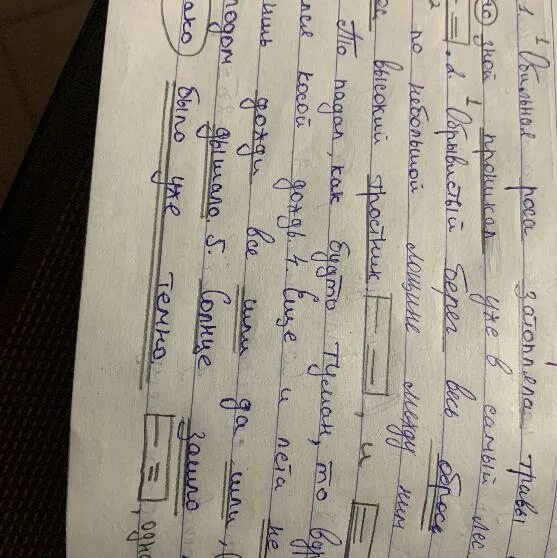 1. Обильная роса затопляла травы
зной проникал уже в самый лес
2. Обрывистый берег весь оброс
по небольшой лощине между ним
высокий тростник [– =], и [=
То падал, как будто туман, то вдр
лся косой дождь. 4. Еще и лета не
дожди все шли да шли,
дышало 5. Солнце зашло
было уже темно. [– =], одн